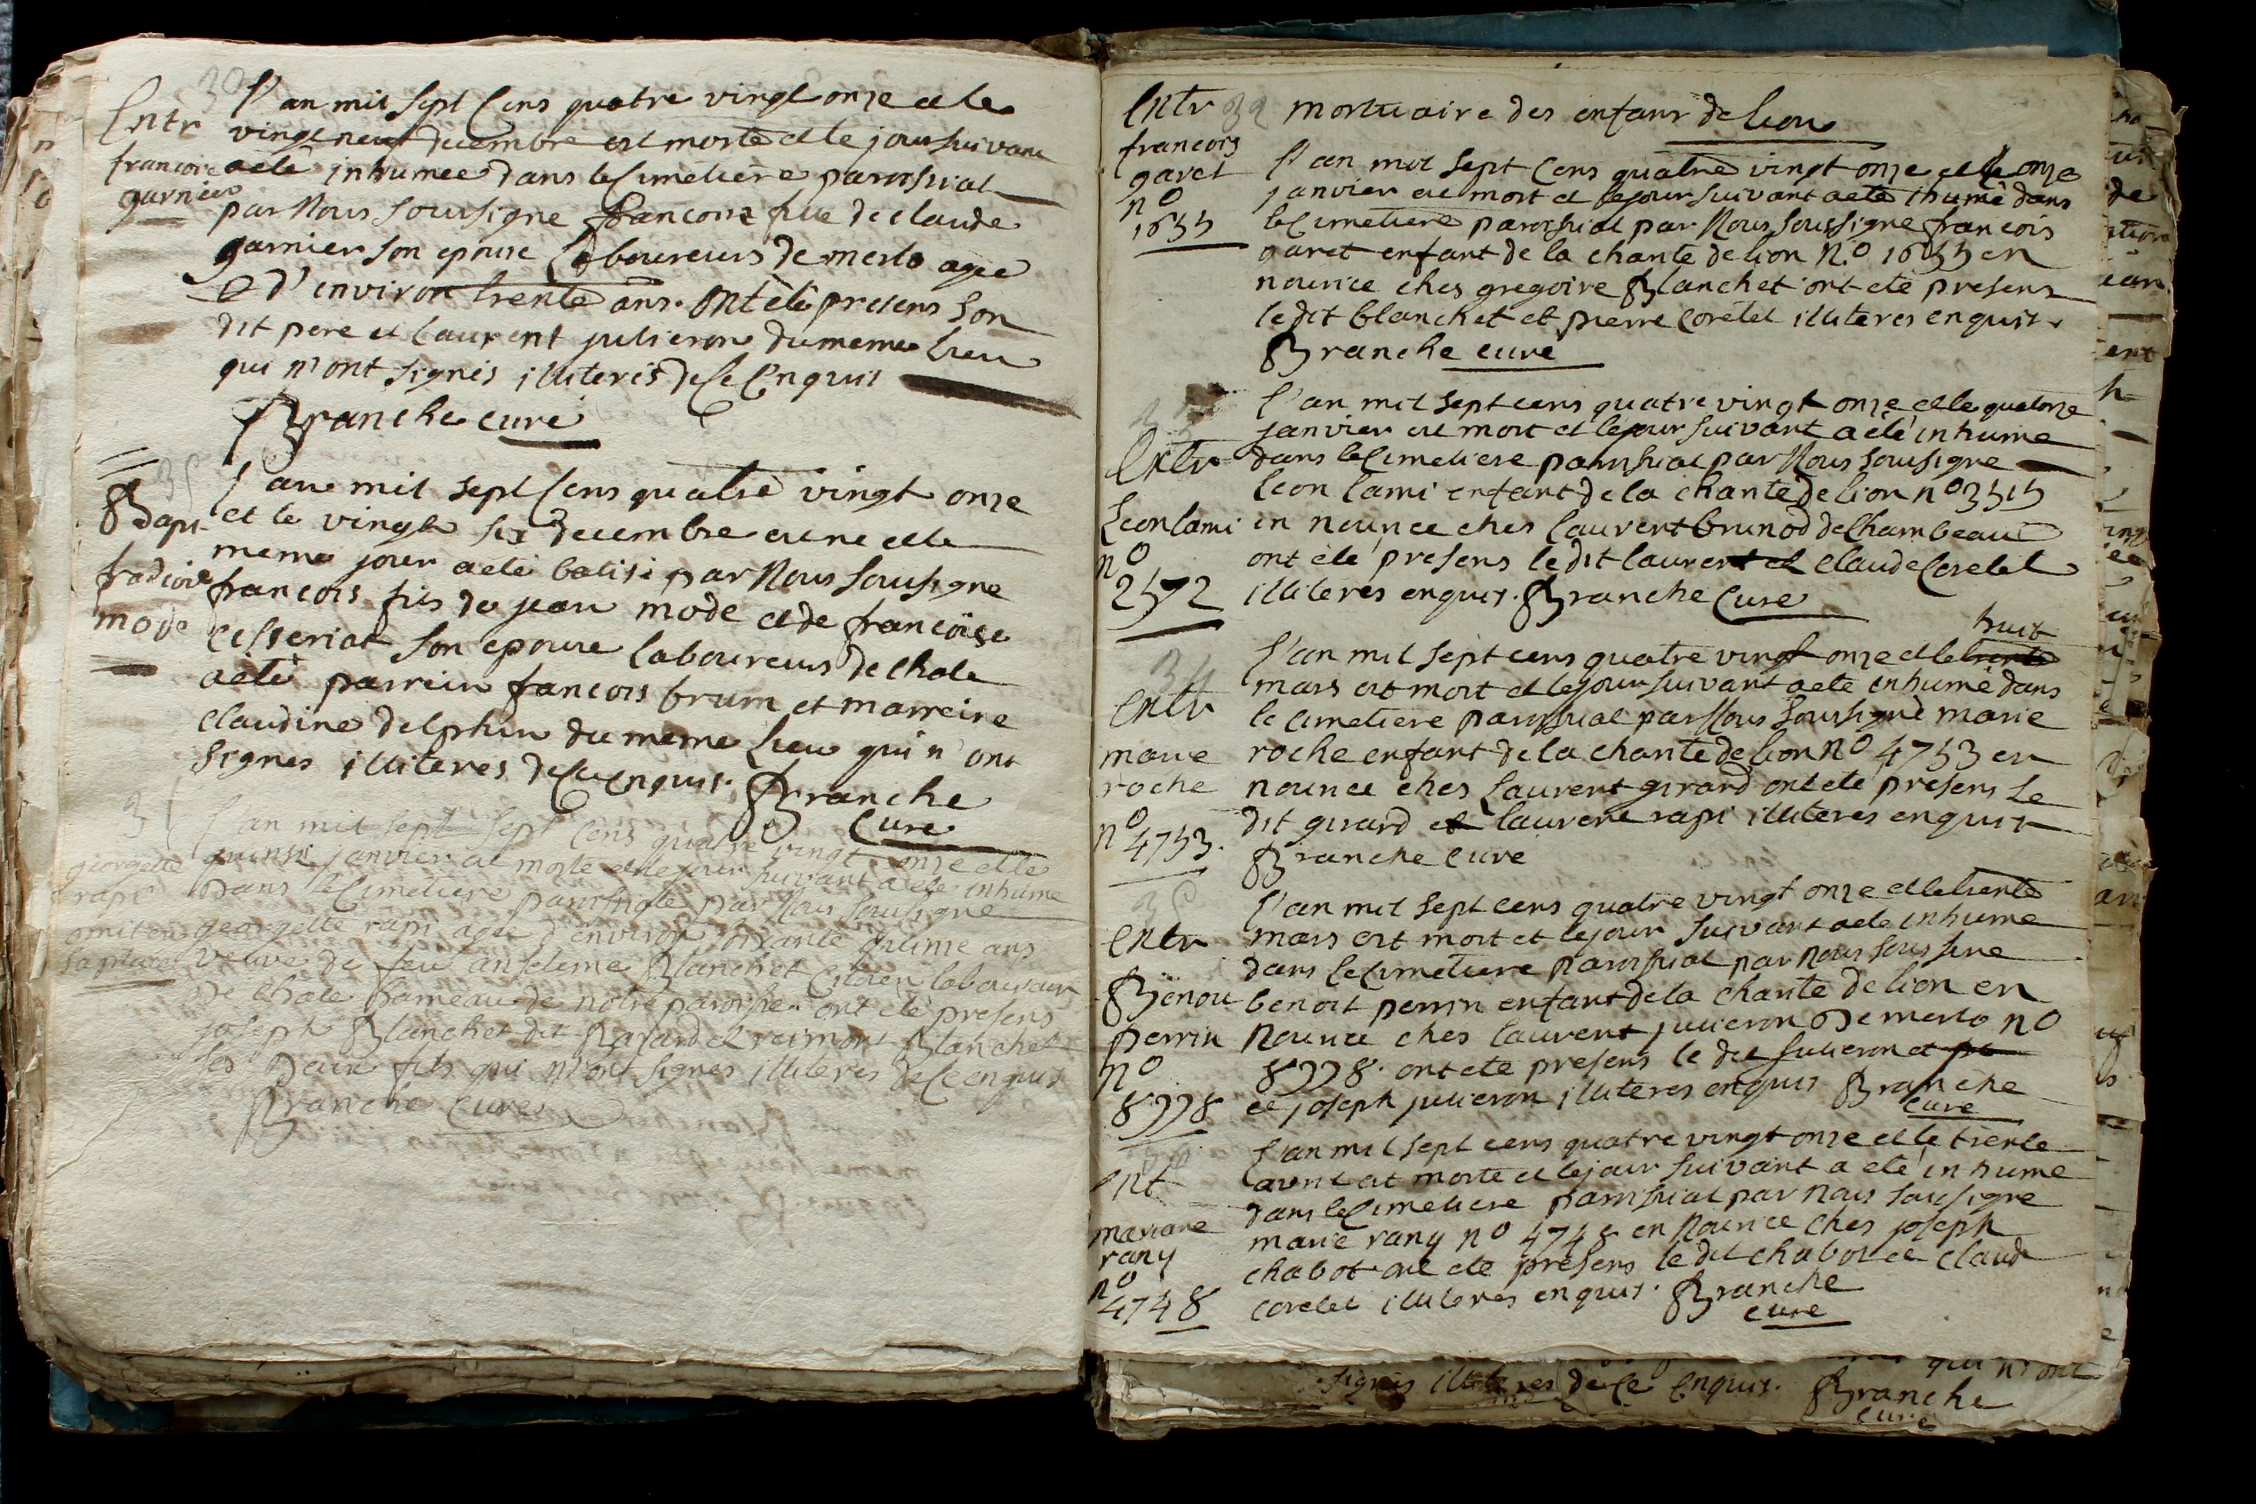 30
Entr
francoise
garnier
l'an mil sept Cens quatre vingt onze et le
vingt neuf decembre est morte et le jour suivant
a ete inhumee dans le Cimetiere paroissial
par Nous Soussigne francoise fille de claude
garnier son epouse Laboureurs de merlo agee
d'environ trente ans. Ont été presens Son
dit pere et laurent julieron du meme Lieu
qui n'ont signés illiteres de Ce Enquis
Branche curé
Bapt
francois
mode
l'an mil sept Cens quatre vingt onze
et le vingt six decembre est ne et le
meme jour a eté batisé par Nous Soussigne
francois fils de jean mode et de francoise
son epouse laboureurs de chole
a eté parrein francois brun et marreine
claudine delphin du meme Lieu qui n'ont
Signes illiteres de Ce enquis. Branche
Curé
georgette
rapi
omit en
sa place
l'an mil sept sept Cens quatre vingt onze et le
quinse janvier est morte et le jour suivant a ete inhume
Dans le Cimetiere paroissiale par Nous Soussigne
georgette rapi agee d'environ soixante quinse ans
veuve de feu anselme Blanchet Citoien laboureur
De chole hameau de notre paroisse. ont eté presens
joseph Blanchet dit et reimont Blanchet
Ses Deux fils qui n'ont signes illiteres de Ce enquis
Branche Curé
Entr
francois
garet
n°
1655
32
mortuaire des enfans de lion
l'an mil Sept Cens quatre vingt onze et le onze
janvier est mort et le jour suivant a eté ihumé dans
le Cimetiere paroissial par Nous Soussigne francois
garet enfant de la charite de lion N.° 1655 en
nourice ches gregoire Blanchet ont eté presens
le dit blanchet et pierre Coretel illiteres enquis.
Branche curé
Entr
Leon lami
n°
2592
l'an mil Sept cens quatre vingt onze et le quatorze
janvier est mort et le jour suivant a eté inhume
dans le Cimetiere paroissial par Nous Soussigne
leon lami enfant de la charite de lion n° 3515
en nourice ches laurent brunod de Chambeau
ont eté presens le dit laurent et claude Coretel
illiteres enquis. Branche Curé
34
Entr
marie
roche
n°
4753.
huit
l'an mil sept cens quatre vingt onze et le trente
mars est mort et le jour suivant a ete inhumé dans
le cimetiere paroissial par Nous Soussigné marie
roche enfant de la charite de lion N° 4753 en
nourice ches Laurent girard ont eté presens Le
dit girard et laurent rapi illiteres enquis
Branche curé
Entr
Benoit
perrin
n°
8998
l'an mil sept cens quatre vingt onze et le trente
mars est mort et le jour suivant a ete inhume
dans le Cimetiere paroissial par Nous Sous sine
benoit perrin enfant de la charite de lion en
Nourice ches laurent julieron De merlo n°
8998. ont eté presens le dit Julieron et
et joseph julieron illiteres enquis Branche
Curé
Ent
mariane
rany
n°
4748
l'an mil sept cens quatre vingt onze et le trente
avril est morte et le jour suivant a eté inhume
dans le Cimetiere paroissial par Nous Soussigne
marie rany n° 4748 en Nourice Ches joseph
chabot ont eté presens le dit chabot et claude
coretel illiteres enquis. Branche
curé
qui n'ont
signés illiteres de Ce Enquis. Branche
curé